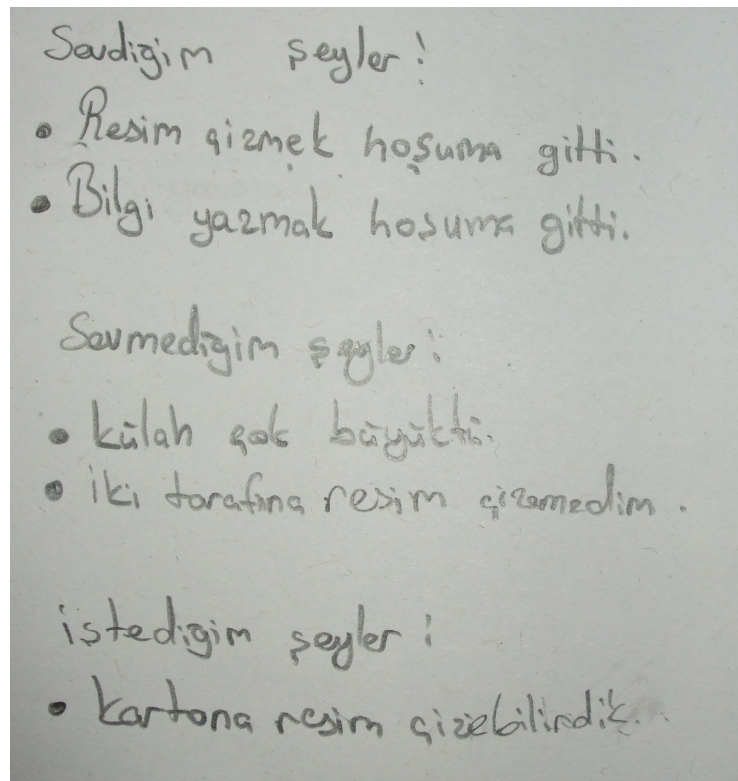 Sevdiğim şeyler:
• Resim çizmek hoşuma gitti.
• Bilgi yazmak hoşuma gitti.
Sevmediğim şeyler:
• Külah çok büyüktü.
• iki tarafına resim çizemedim.
istediğim şeyler:
• kartona resim çizebilirdik.